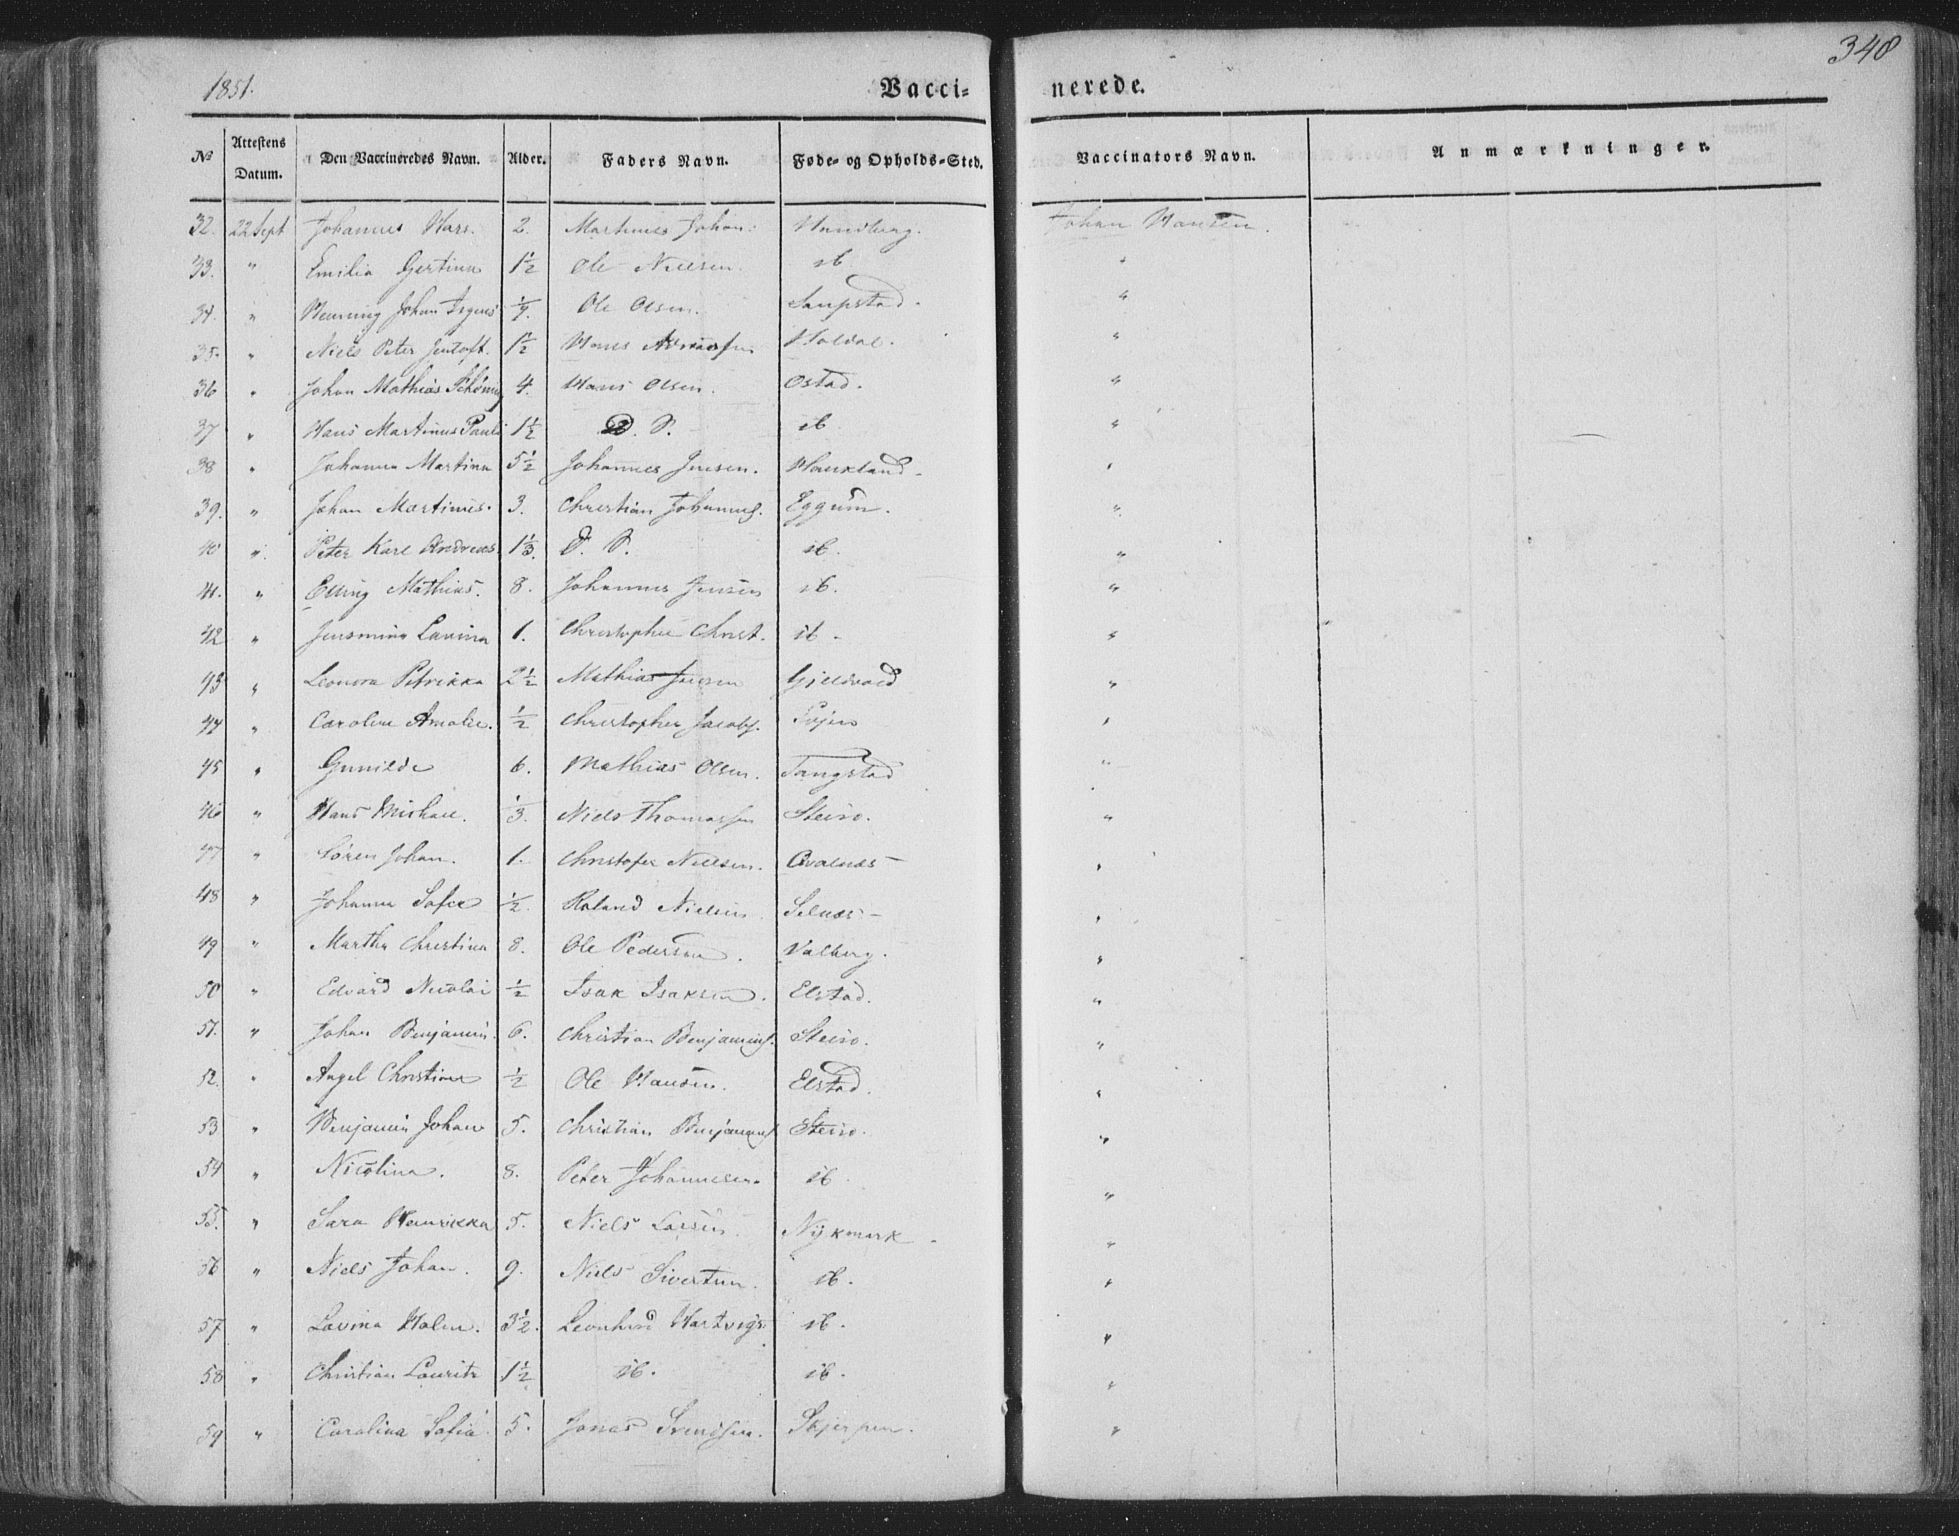 348
1851.
Vacci- nerede.
No Attestens Datum. Den Vaccineredes Navn. Alder. Faders Navn. Føde- og Opholds-Sted. Vaccinators Navn. Anmærkninger.
32. 22 Sept Johannes Hars. 2. Martinus Johan: Hundberg. Johan Hansen.
33. " Emilia Gertina 1½ Ole Nielsen. ib "
34. " Henning Johan ¼. Ole Olsen. "
35. " Niels Peter Jentoft. 1½ Hans Holdal. "
36 " Johan Mathias 4. Hans Olsen. Ostad. "
37 " Hans Martinus Pauli 1½ D. S. ib "
38 " Johanna Martina 5½ Johannes Jensen. Haukland. "
39. " Johan Martinus. 3. Christian Johannes. Eggum. "
40 " Peter Karl Andreas. 1⅓. D. S. ib. "
41. " Elling Mathias. 8. Johannes Jensen ib. "
42 " Jensmina Lavina 1. Christopher Christ. ib. "
43 " Leonora Petrikka 2½ Mathias Jensen "
44 " Caroline Amalie. ½ Christopher Jacobs. "
45 " Gunilde 6. Mathias Olsen. Tangstad "
46 " Hans Michael. ⅓. Niels Thomassen Steiro. "
47 " Søren Johan. 1. Christofer Nielsen. Qvalnæs "
48 " Johanna Sofie ½. Roland Nielsen. Selnæs "
49 " Martha Christina 8. Ole Pedersen. Valberg. "
50 " Edvard Nicolai ½ Isak Isaksen. Elstad. "
51. " Johan Benjamin. 6. Christian Benjamins. Steiro. "
52. " Angel Christine ½ Ole Hansen. Elstad. "
53 " Benjamin Johan 5. Christian Benjamins Steiro. "
54 " Nicolina. 8. Peter Johannesen. ib. "
55. " Sara Henrikka 5. Niels Larsen. Nykmark. "
56 " Niels Johan. 9. Niels Sivertsen. ib. "
57 " Lavina Halen. 3½. Leonhard Hartvigs: ib. "
58 " Christian Lauritz 1½ ib. ib. "
59 " Carolina Sofia. 5. Jonas Svendsen. Skjerpen. "